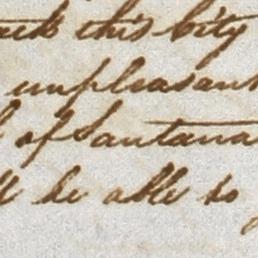 this City
unpleasant
of Santana
be able to